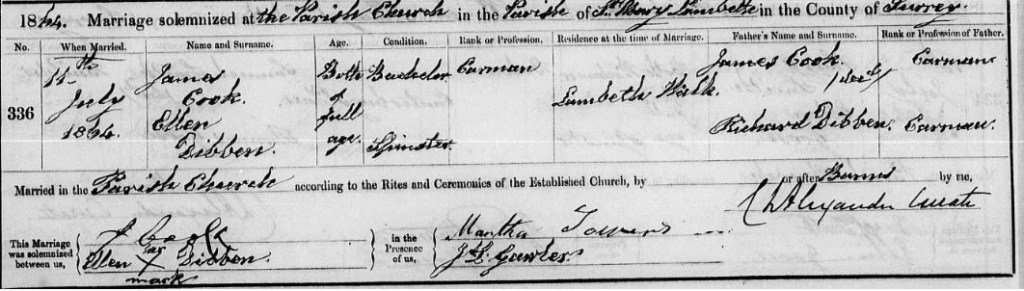 1864. Marriage solemnized at the Parish Church in the Parish of St. Mary Lambeth in the County of Surrey.
No. When Married. Name and Surname. Age. Condition. Rank or Profession. Residence at the time of Marriage. Father's Name and Surname. Rank or Profession of Father.
336
11th July 1864.
James Cook.
Ellen Dibben.
Both of full age.
Bachelor
Spinster
Carman
Lambeth Walk.
James Cook. (decd)
Richard Dibben.
Carman
Carman.
Married in the Parish Church according to the Rites and Ceremonies of the Established Church, by or after Banns by me,
Alexander Curate
This Marriage was solemnized between us,
J Cook
Ellen X Dibben.
her
mark
in the Presence of us,
Martha Towers
J. L. Gawler